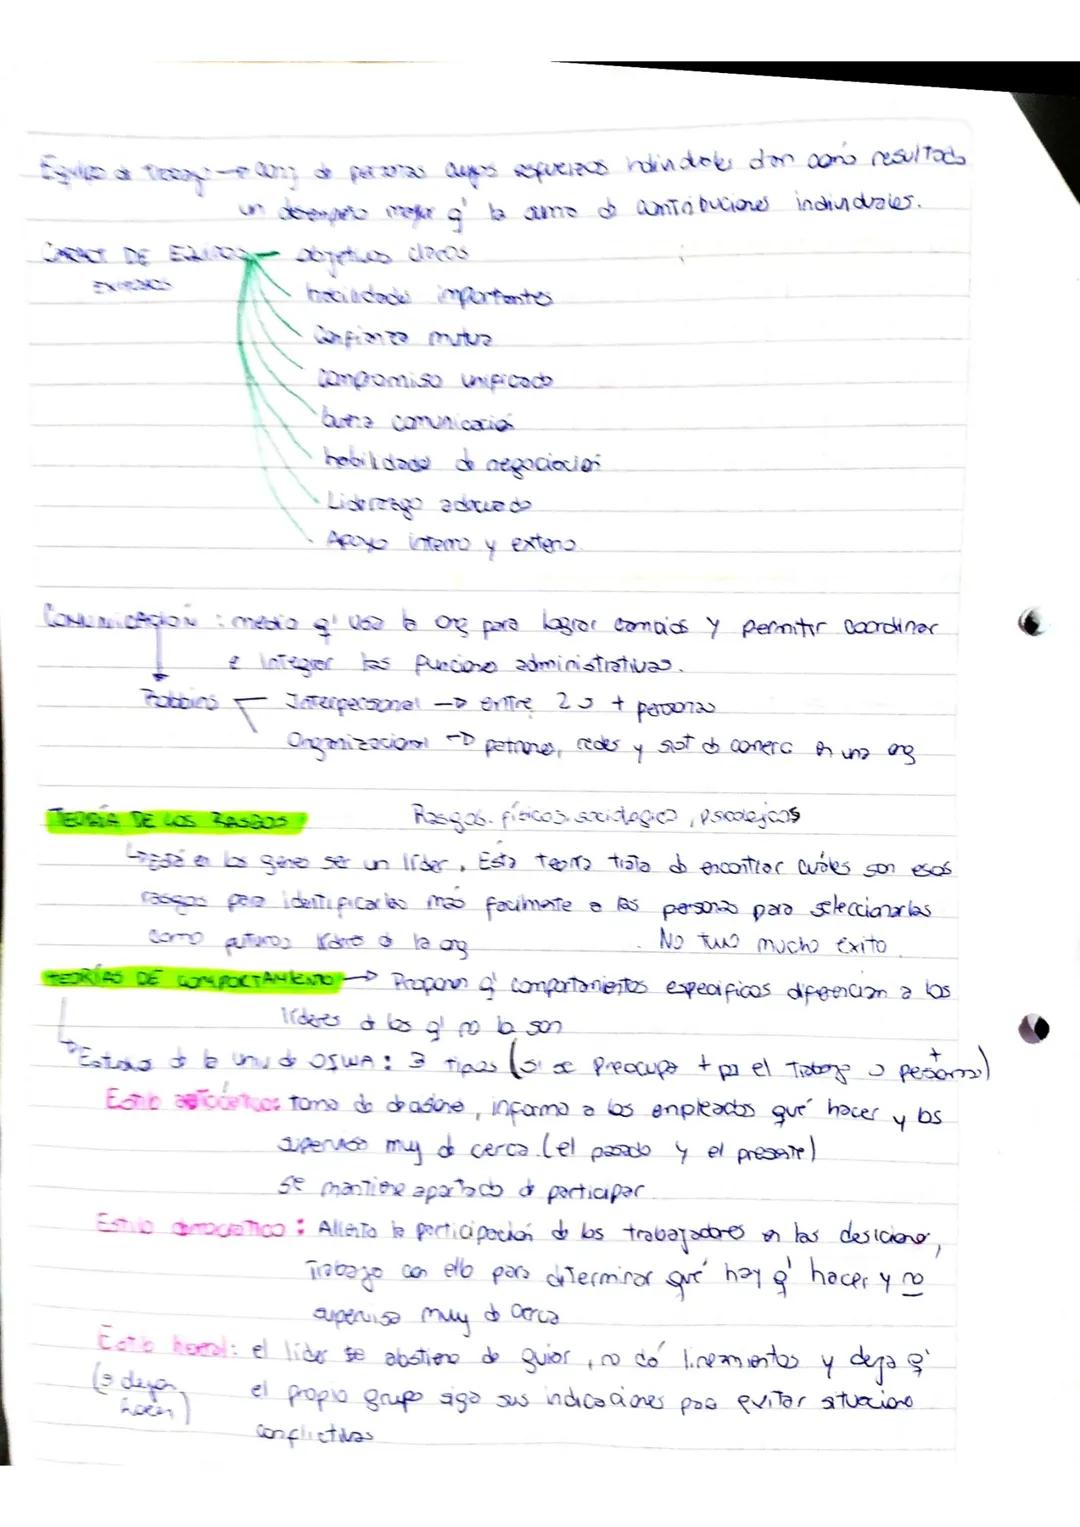 Equipo de Trabajo → conj de personas cuyos esfuerzos individuales dan como resultado
un desempeño mejor q' la suma de contribuciones individuales.
CARACT DE EQUIPOS — objetivos claros
EXITOSOS
habilidades importantes
Confianza mutua
compromiso unificado
buena comunicación
habilidades de negociación
Liderazgo adecuado
Apoyo interno y externo.
COMUNICACIÓN : medio q' usa la org para lograr cambios y permitir coordinar
e integrar las funciones administrativas.
Robbins Interpersonal → entre 2 o + personas
Organizacional → patrones, redes y sist de comerc en una org
TEORÍA DE LOS RASGOS: Rasgos. físicos. sociologico, psicolejcos
↳ Está en los genes ser un líder. Esta teoría trata de encontrar cuáles son esos
rasgos para identificarlos más facilmente a las personas para seleccionarlas
como futuros líderes de la org. No tuvo mucho éxito.
TEORÍAS DE COMPORTAMIENTO → Proponen q' comportamientos especificos diferencian a los
líderes de los q' no lo son
Estudios de la univ de OIWA: 3 tipos (si se preocupa + por el Trabajo o + persona)
Estilo autocrático: toma de desiciones, informa a los enpleados qué hacer y los
supervisa muy de cerca. (el pasado y el presente)
se mantiene apartado de participar.
Estilo democratico: Alienta la participación de los trabajadores en las desiciones,
Trabaja con ello para determinar qué hay q' hacer y no
supervisa muy de cerca
Estilo liberal: el líder se abstiene de guiar, no dá lineamientos y deja q'
(o dejan hacer) el propio grupo siga sus indicaciones para evitar situaciones
conflictivas